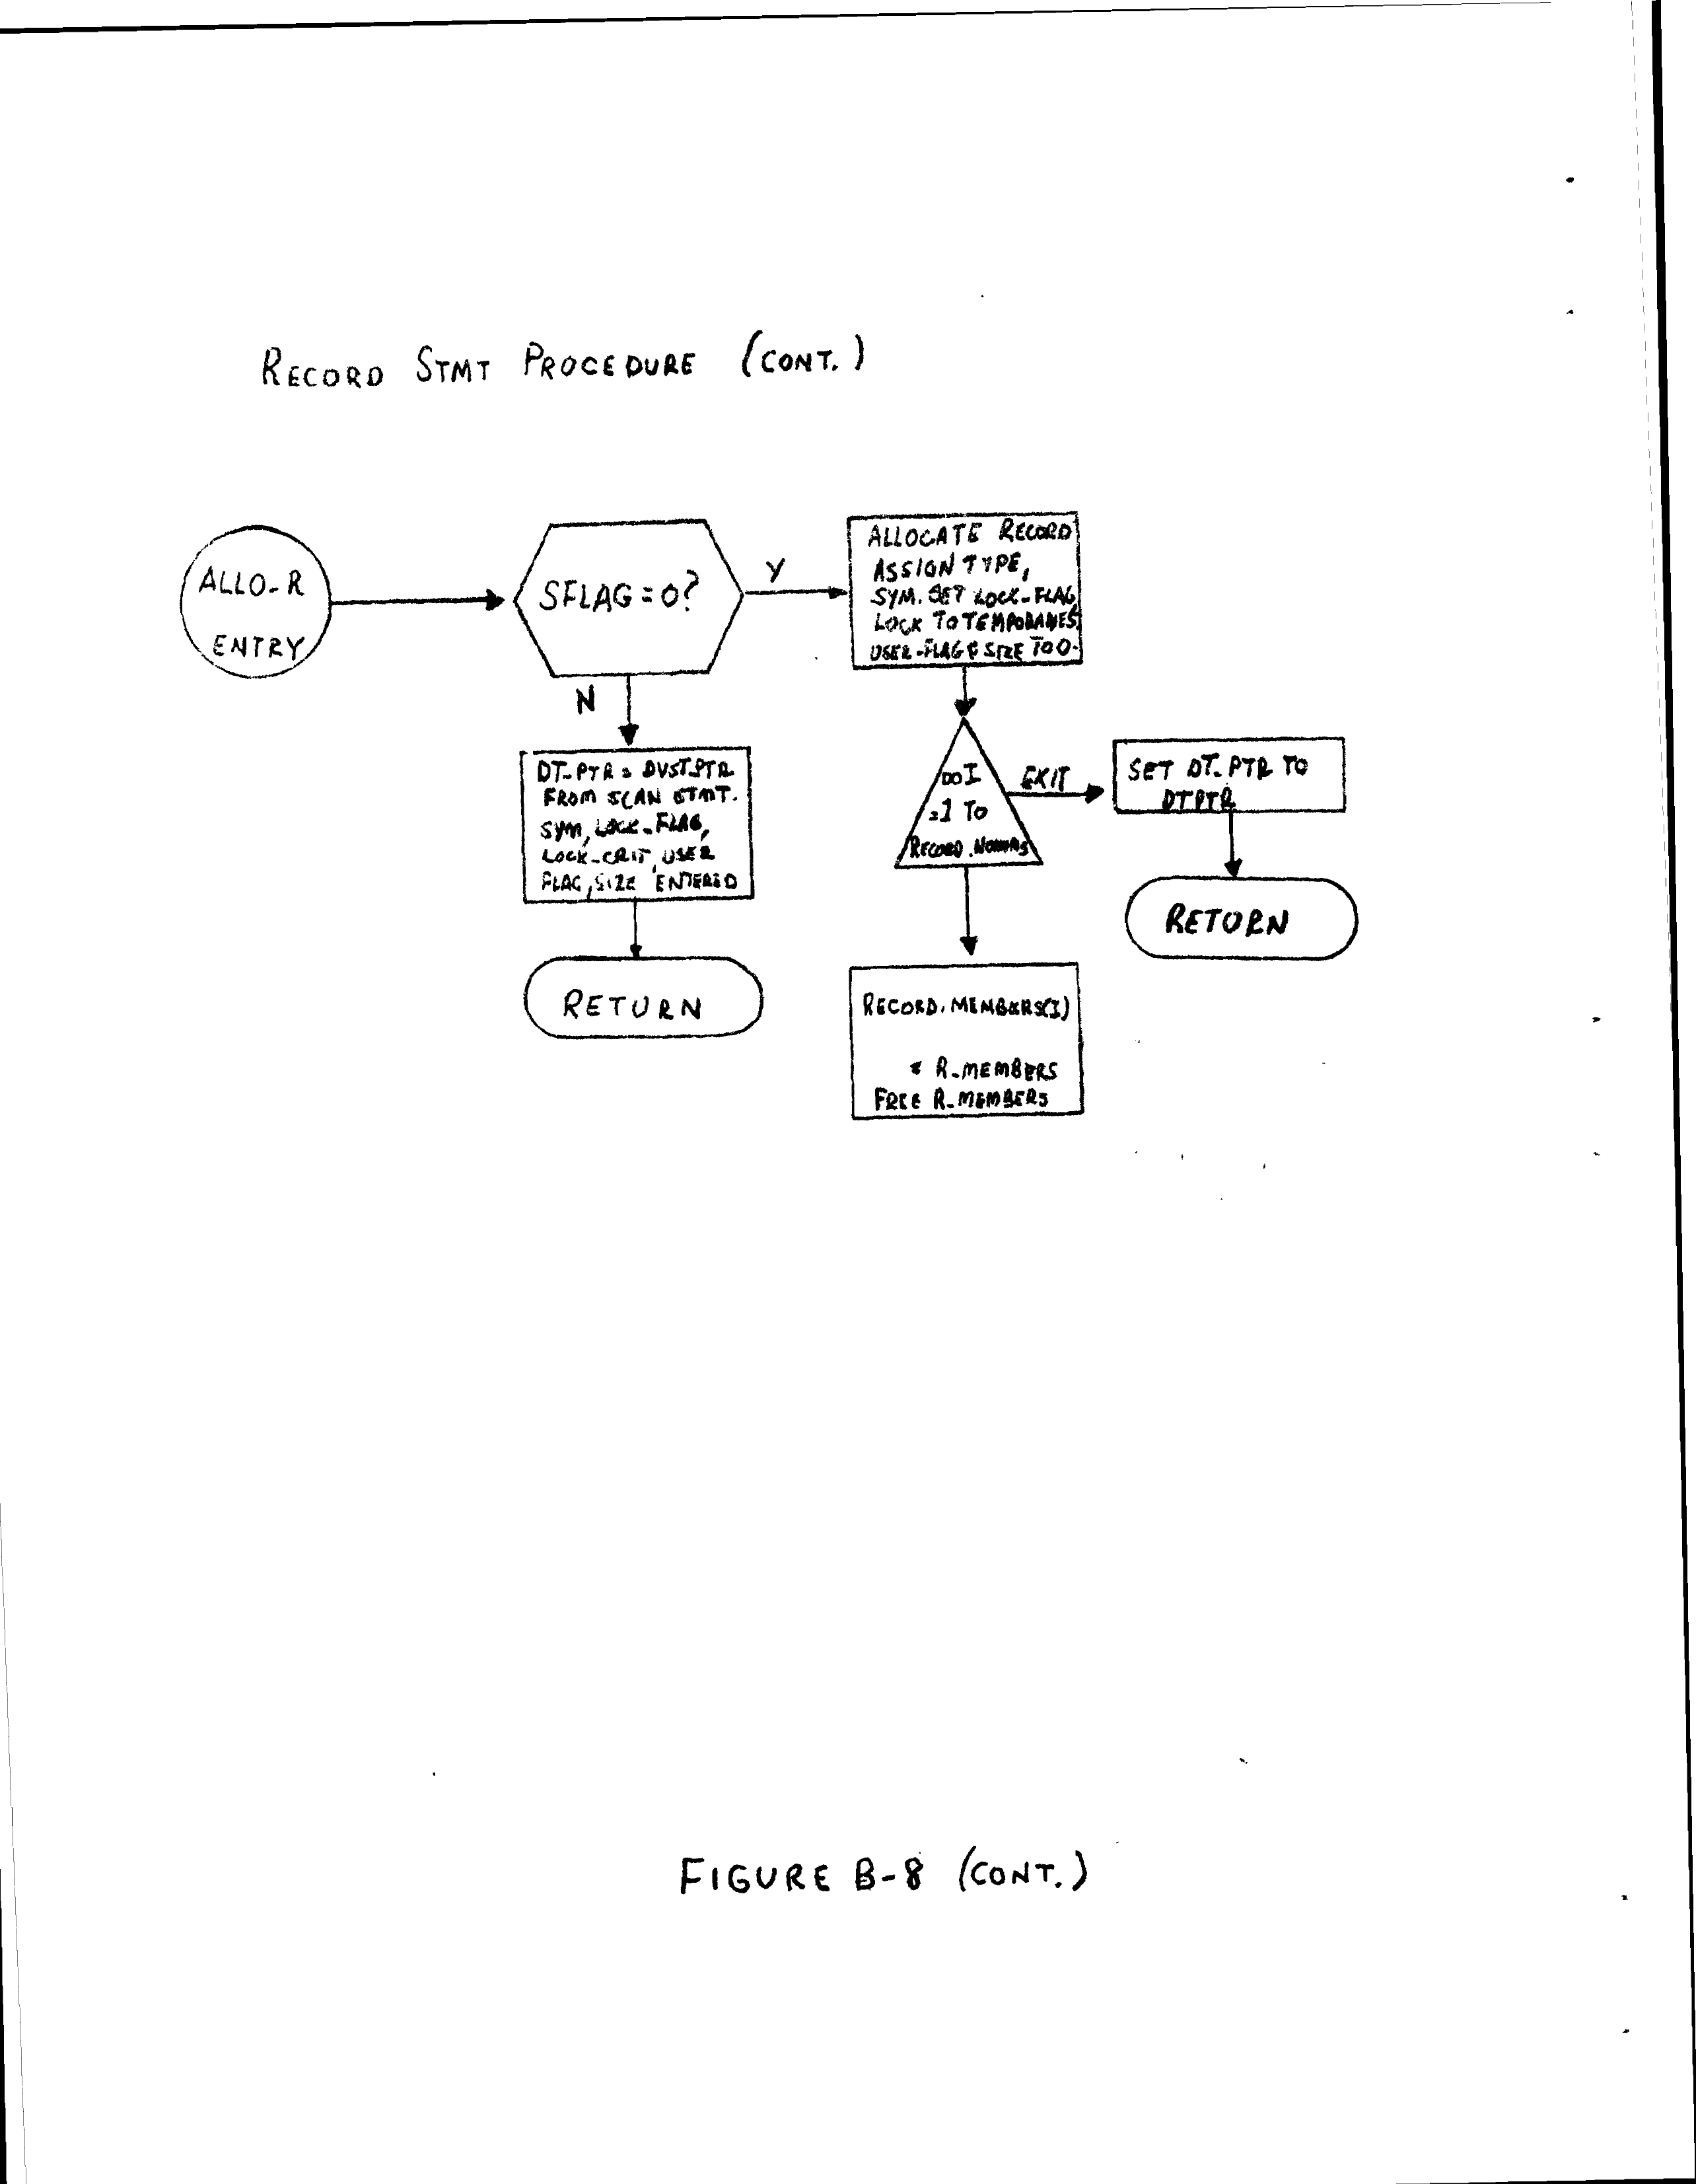 RECORD STMT PROCEDURE (CONT.)
ALLO-R
ENTRY
SFLAG = 0?
Y
N
ALLOCATE RECORD
ASSIGN TYPE,
SYM. SET LOCK-FLAG
LOCK TO TEMPORARIES
USER-FLAG & SIZE TO 0.
DT-PTR = DVST-PTR
FROM SCAN STMT.
SYM, LOCK-FLAG,
LOCK-CRIT, USER
FLAG, SIZE ENTERED
RETURN
DO I
=1 TO
RECORD.
EXIT
SET DT-PTR TO
DTPTR
RETURN
RECORD.MEMBERS(I)
= R-MEMBERS
FREE R-MEMBERS
FIGURE B-8 (CONT.)